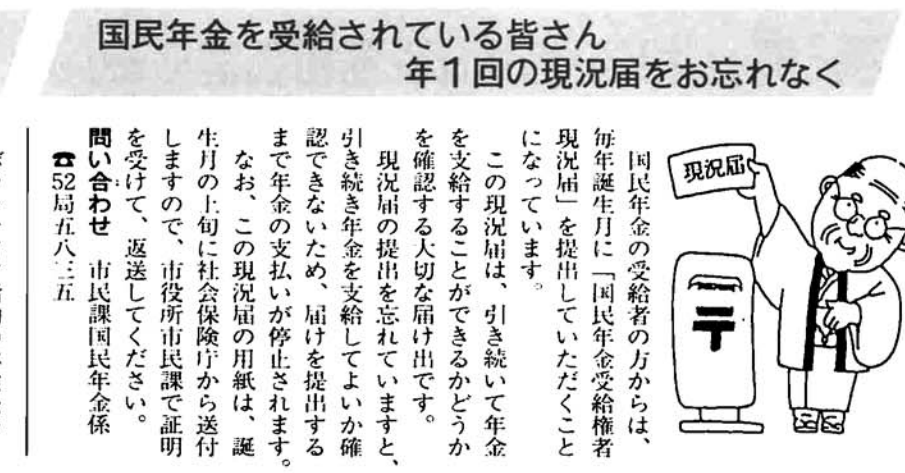 国民年金を受給されている皆さん
年1回の現況届をお忘れなく
現況届
〒
国民年金の受給者の方からは、
毎年誕生月に「国民年金受給権者
現況届」を提出していただくこと
になっています。
この現況届は、引き続いて年金
を支給することができるかどうか
を確認する大切な届け出です。
現況届の提出を忘れていますと、
引き続き年金を支給してよいか確
認できないため、届けを提出する
まで年金の支払いが停止されます。
なお、この現況届の用紙は、誕
生月の上旬に社会保険庁から送付
しますので、市役所市民課で証明
を受けて、返送してください。
問い合わせ　市民課国民年金係
☎52局五八三五